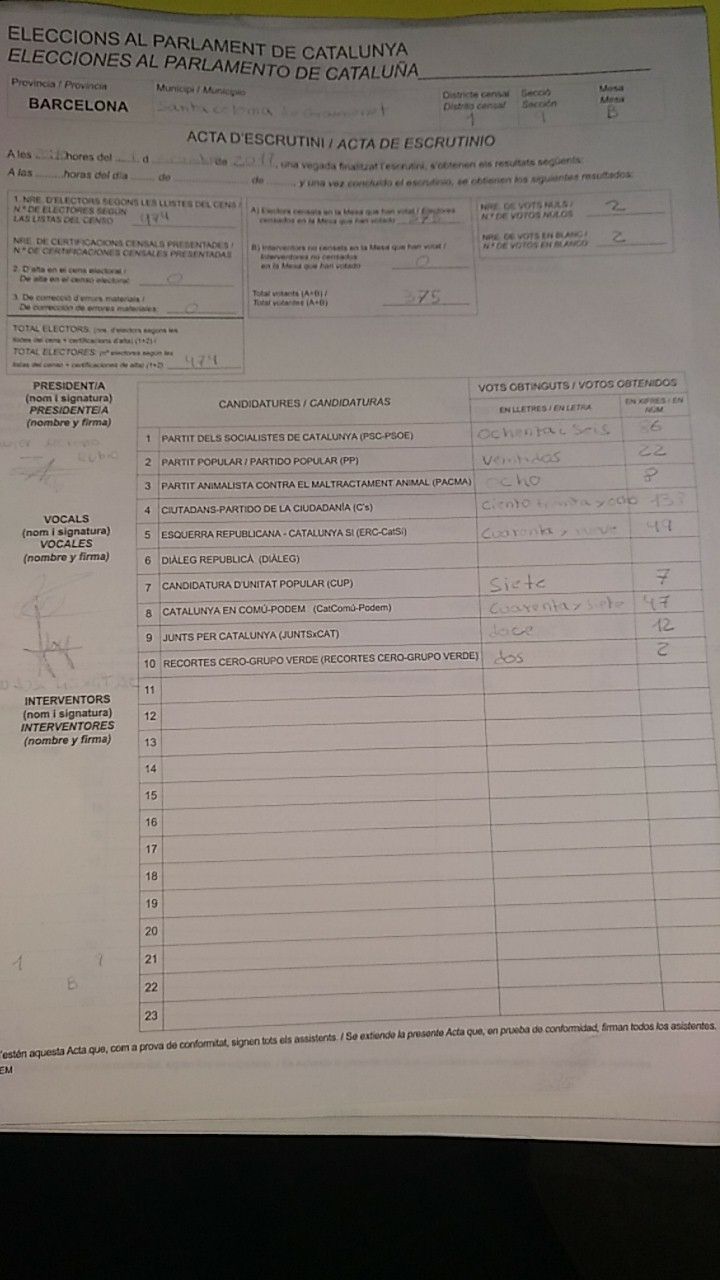 ELECCIONS AL PARLAMENT DE CATALUNYA
ELECCIONES AL PARLAMENTO DE CATALUÑA
Província / Provincia
Municipi / Municipio
Districte censal
Distrito censal
Secció
Sección
Mesa
Mesa
BARCELONA
Santa coloma de Gramenet
1
9
B
ACTA D'ESCRUTINI / ACTA DE ESCRUTINIO
A les hores del d de 2017, una vegada finalitzat l'escrutini, s'obtenen els resultats següents:
A las horas del día de de , y una vez concluido el escrutinio, se obtienen los siguientes resultados:
1. NRE. D'ELECTORS SEGONS LES LLISTES DEL CENS /
N.º DE ELECTORES SEGÚN
LAS LISTAS DEL CENSO 474
NRE. DE CERTIFICACIONS CENSALS PRESENTADES /
N.º DE CERTIFICACIONES CENSALES PRESENTADAS
2. D'alta en el cens electoral /
De alta en el censo electoral: 0
3. De correcció d'errors materials /
De corrección de errores materiales: 0
TOTAL ELECTORS: (nre. d'electors segons les
llistes del cens + certificacions d'alta) (1+2) /
TOTAL ELECTORES: (nº electores según las
listas del censo + certificaciones de alta) (1+2) 474
A) Electors censats en la Mesa que han votat / Electores
censados en la Mesa que han votado 375
B) Interventors no censats en la Mesa que han votat /
Interventores no censados
en la Mesa que han votado 0
Total votants (A+B) /
Total votantes (A+B) 375
NRE. DE VOTS NULS /
N.º DE VOTOS NULOS 2
NRE. DE VOTS EN BLANC /
N.º DE VOTOS EN BLANCO 2
PRESIDENT/A
(nom i signatura)
PRESIDENTE/A
(nombre y firma)
Rubio
VOCALS
(nom i signatura)
VOCALES
(nombre y firma)
INTERVENTORS
(nom i signatura)
INTERVENTORES
(nombre y firma)
1 9
B
CANDIDATURES / CANDIDATURAS
VOTS OBTINGUTS / VOTOS OBTENIDOS
EN LLETRES / EN LETRA
EN XIFRES / EN NÚM.
1 PARTIT DELS SOCIALISTES DE CATALUNYA (PSC-PSOE) ochenta y seis 86
2 PARTIT POPULAR / PARTIDO POPULAR (PP) ventidos 22
3 PARTIT ANIMALISTA CONTRA EL MALTRACTAMENT ANIMAL (PACMA) ocho 8
4 CIUTADANS-PARTIDO DE LA CIUDADANÍA (C's) ciento treinta y ocho 138
5 ESQUERRA REPUBLICANA - CATALUNYA SÍ (ERC-CatSí) cuarenta y nueve 49
6 DIÀLEG REPUBLICÀ (DIÀLEG)
7 CANDIDATURA D'UNITAT POPULAR (CUP) siete 7
8 CATALUNYA EN COMÚ-PODEM (CatComú-Podem) cuarenta y siete 47
9 JUNTS PER CATALUNYA (JUNTSxCAT) doce 12
10 RECORTES CERO-GRUPO VERDE (RECORTES CERO-GRUPO VERDE) dos 2
11
12
13
14
15
16
17
18
19
20
21
22
23
'estén aquesta Acta que, com a prova de conformitat, signen tots els assistents. / Se extiende la presente Acta que, en prueba de conformidad, firman todos los asistentes.
EM